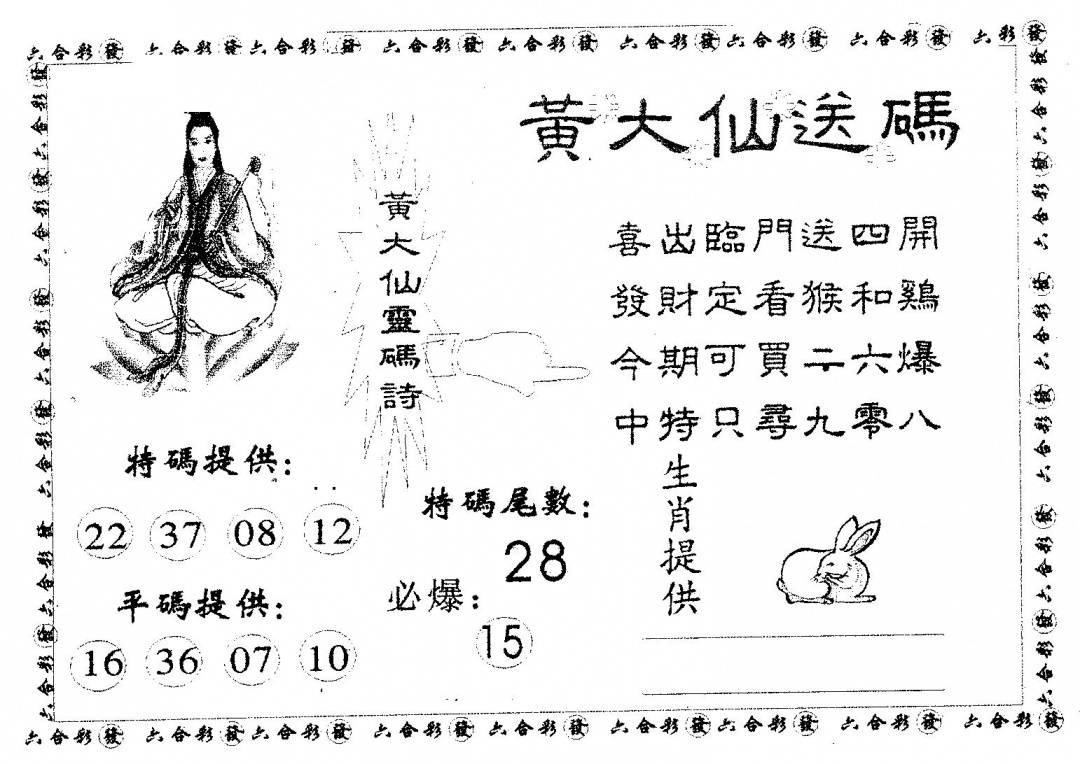 六合彩發 六合彩發 六合彩發 六合彩發 六合彩發 六合彩發 六合彩發 六合彩發 六彩發
黃大仙送碼
黃大仙靈碼詩
喜出臨門送四開
發財定看猴和鷄
今期可買二六爆
中特只尋九零八
特碼提供:
22 37 08 12
平碼提供:
16 36 07 10
特碼尾數:
28
必爆:
15
生肖提供
六合彩發 六合彩發 六合彩發 六合彩發 六合彩發 六合彩發 六合彩發 六合彩發 六合彩發